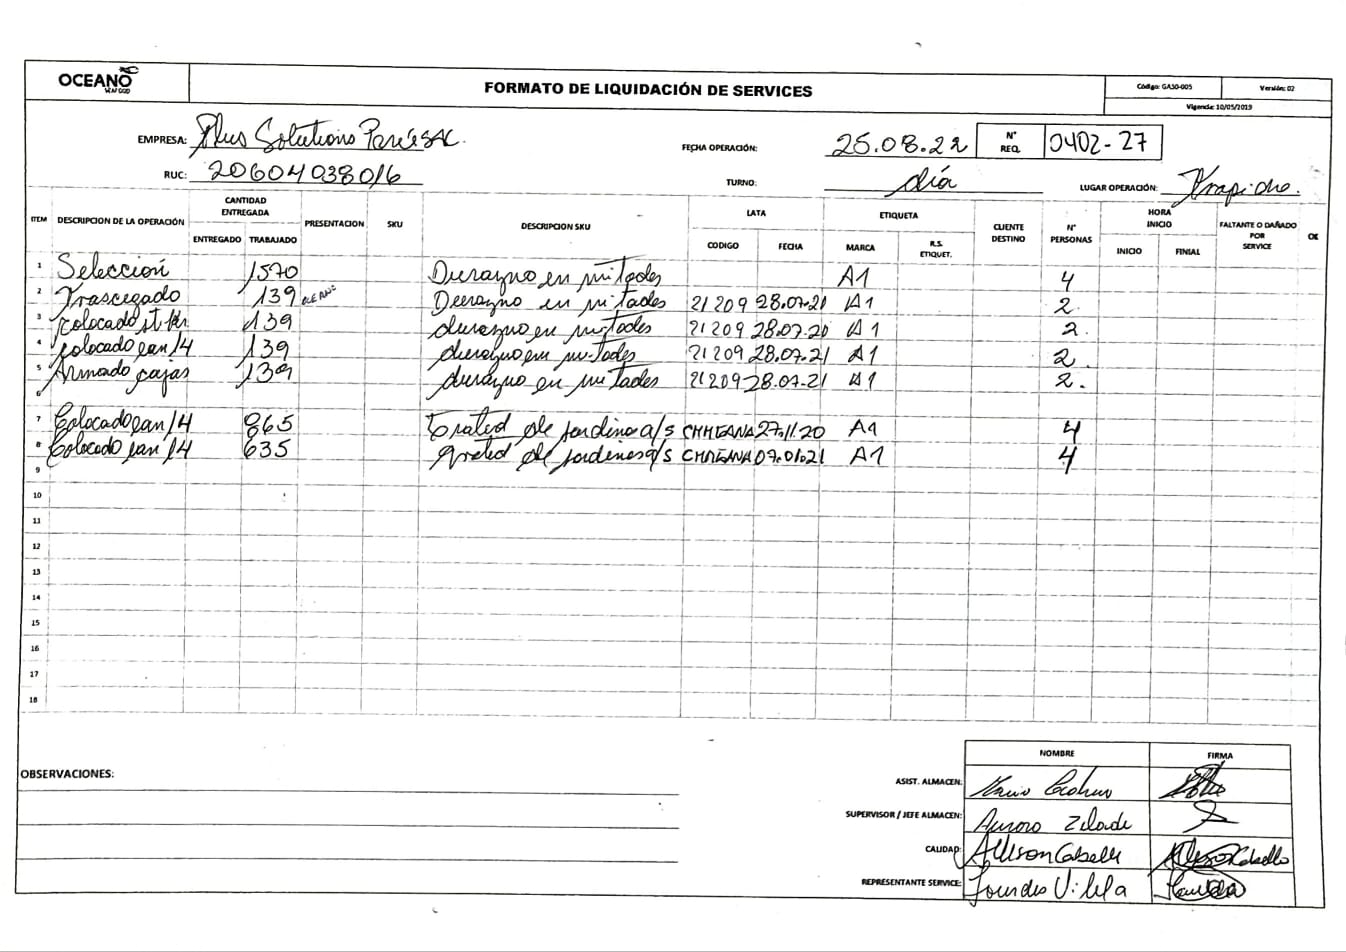 OCEANO
SEAFOOD
FORMATO DE LIQUIDACIÓN DE SERVICES
Código: GASO-005
Versión: 02
Vigencia: 10/05/2019
EMPRESA: Plus Solutions Perú SAC.
FECHA OPERACIÓN: 25.08.22
N° REQ. 0402-27
RUC: 20604038016
TURNO: día
LUGAR OPERACIÓN: Trapiche.
ITEM DESCRIPCION DE LA OPERACIÓN CANTIDAD ENTREGADA PRESENTACION SKU DESCRIPCION SKU LATA ETIQUETA CLIENTE DESTINO N° PERSONAS HORA INICIO FALTANTE O DAÑADO POR SERVICE
ENTREGADO TRABAJADO CODIGO FECHA MARCA R.S. ETIQUET. INICIO FINIAL
1 Selección 1570 Durazno en mitades A1 4
2 Trasegado 139 Durazno en mitades 21209 28.07.20 A1 2.
3 Colocado 139 durazno en mitades 21209 28.07.20 A1 2.
4 Colocado 139 durazno en mitades 21209 28.07.21 A1 2.
5 Armado cajas 139 durazno en mitades 21209 28.07.21 A1 2.
6
7 Colocado 865 de sardina a/s 27.11.20 A1 4
8 Colocado 635 de sardines a/s 07.01.21 A1 4
9
10
11
12
13
14
15
16
17
18
OBSERVACIONES:
NOMBRE FIRMA
ASIST. ALMACEN:
SUPERVISOR / JEFE ALMACEN:
CALIDAD: Allison
REPRESENTANTE SERVICE: Lourdes Vilela